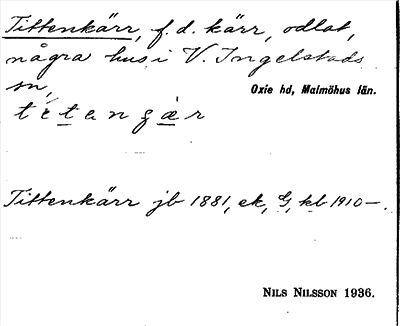 Tittenkärr, f. d. kärr, odlat,
några hus i V. Ingelstads
sn,
Oxie hd, Malmöhus län.
titengær
Tittenkärr jb 1881, ek, G, kb 1910–.
NILS NILSSON 1936.